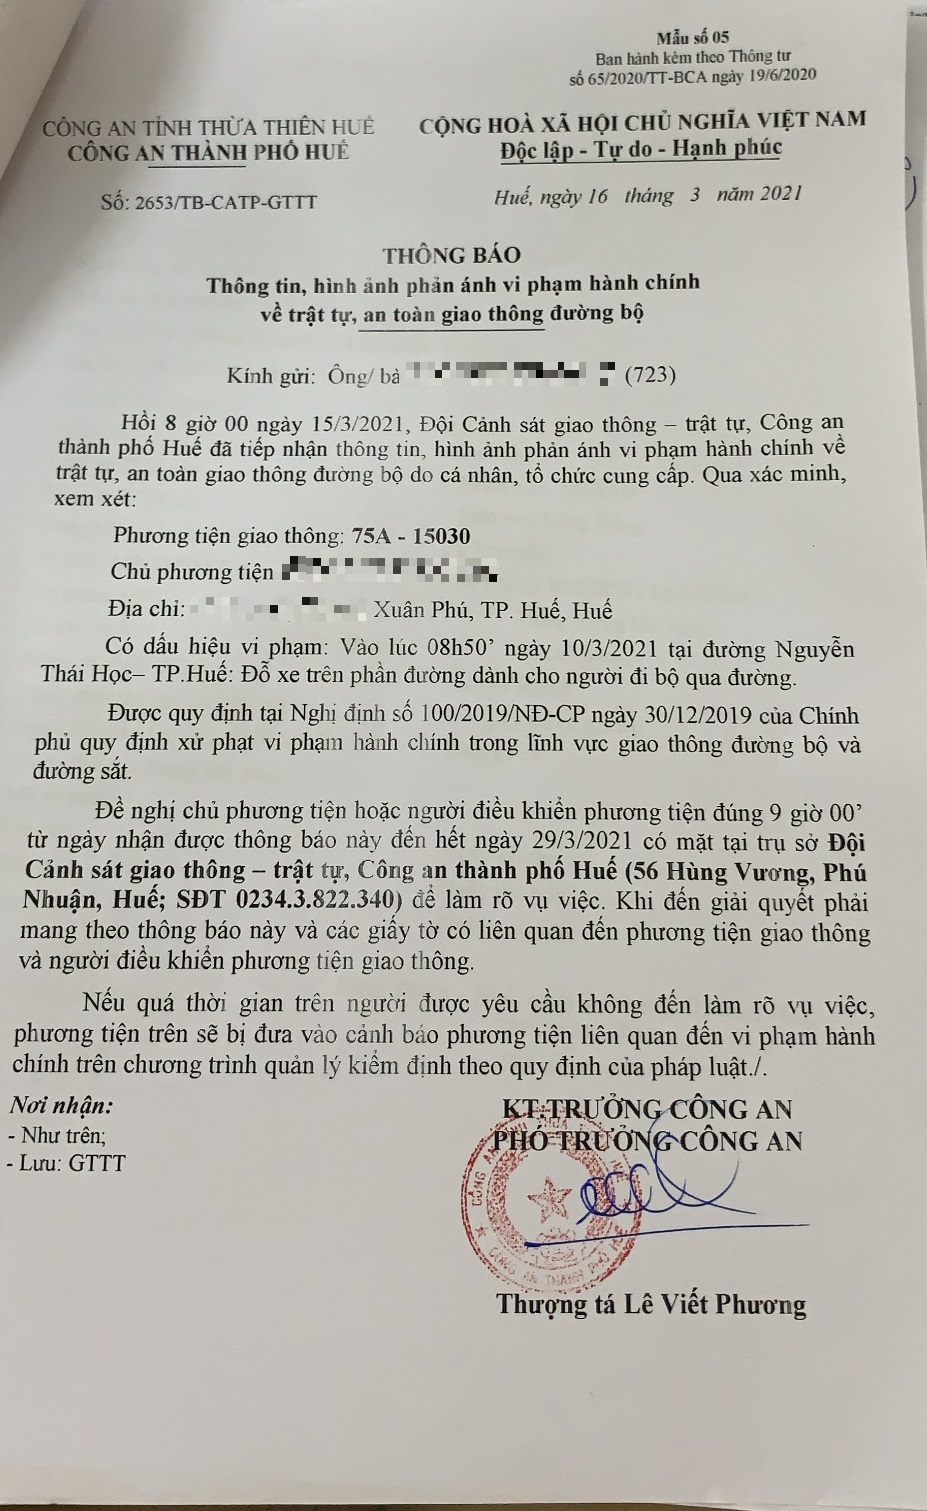 Mẫu số 05
Ban hành kèm theo Thông tư
số 65/2020/TT-BCA ngày 19/6/2020
CÔNG AN TỈNH THỪA THIÊN HUẾ
CÔNG AN THÀNH PHỐ HUẾ
CỘNG HOÀ XÃ HỘI CHỦ NGHĨA VIỆT NAM
Độc lập - Tự do - Hạnh phúc
Số: 2653/TB-CATP-GTTT
Huế, ngày 16 tháng 3 năm 2021
THÔNG BÁO
Thông tin, hình ảnh phản ánh vi phạm hành chính
về trật tự, an toàn giao thông đường bộ
Kính gửi: Ông/ bà (723)
Hồi 8 giờ 00 ngày 15/3/2021, Đội Cảnh sát giao thông – trật tự, Công an
thành phố Huế đã tiếp nhận thông tin, hình ảnh phản ánh vi phạm hành chính về
trật tự, an toàn giao thông đường bộ do cá nhân, tổ chức cung cấp. Qua xác minh,
xem xét:
Phương tiện giao thông: 75A - 15030
Chủ phương tiện
Địa chỉ: Xuân Phú, TP. Huế, Huế
Có dấu hiệu vi phạm: Vào lúc 08h50’ ngày 10/3/2021 tại đường Nguyễn
Thái Học– TP.Huế: Đỗ xe trên phần đường dành cho người đi bộ qua đường.
Được quy định tại Nghị định số 100/2019/NĐ-CP ngày 30/12/2019 của Chính
phủ quy định xử phạt vi phạm hành chính trong lĩnh vực giao thông đường bộ và
đường sắt.
Đề nghị chủ phương tiện hoặc người điều khiển phương tiện đúng 9 giờ 00’
từ ngày nhận được thông báo này đến hết ngày 29/3/2021 có mặt tại trụ sở Đội
Cảnh sát giao thông – trật tự, Công an thành phố Huế (56 Hùng Vương, Phú
Nhuận, Huế; SĐT 0234.3.822.340) để làm rõ vụ việc. Khi đến giải quyết phải
mang theo thông báo này và các giấy tờ có liên quan đến phương tiện giao thông
và người điều khiển phương tiện giao thông.
Nếu quá thời gian trên người được yêu cầu không đến làm rõ vụ việc,
phương tiện trên sẽ bị đưa vào cảnh báo phương tiện liên quan đến vi phạm hành
chính trên chương trình quản lý kiểm định theo quy định của pháp luật./.
Nơi nhận:
- Như trên;
- Lưu: GTTT
KT.TRƯỞNG CÔNG AN
PHÓ TRƯỞNG CÔNG AN
CÔNG AN THÀNH PHỐ HUẾ
Thượng tá Lê Viết Phương